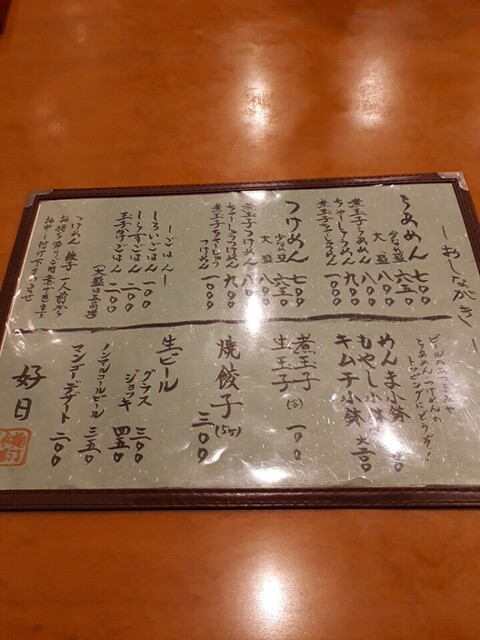 ーおしながきー
らあめん 七〇〇
少な盛 六五〇
大盛 八〇〇
煮玉子らあめん 八〇〇
ちゃーしゅうめん 九〇〇
煮玉子ちゃーしゅうめん 一〇〇〇
つけめん 七〇〇
少な盛 六五〇
大盛 八〇〇
煮玉子つけめん 八〇〇
ちゃーしゅうつけめん 九〇〇
煮玉子ちゃーしゅうつけめん 一〇〇〇
ーごはんー
しろいごはん 一〇〇
しらすごはん 二〇〇
玉子かけごはん 二〇〇
(大盛は五〇増)
つけめん 餃子 一人前から
お持ち帰りご用意できます
お申し付け下さいませ
ビールのおつまみや
らあめん、つけめんの
トッピングにどうぞ!
めんま小鉢
もやし小鉢
キムチ小鉢
煮玉子
生玉子 一〇〇
焼餃子(5ヶ) 三〇〇
生ビール
グラス 三〇〇
ジョッキ 四五〇
ノンアルコールビール 三五〇
マンゴーデザート 二〇〇
好日